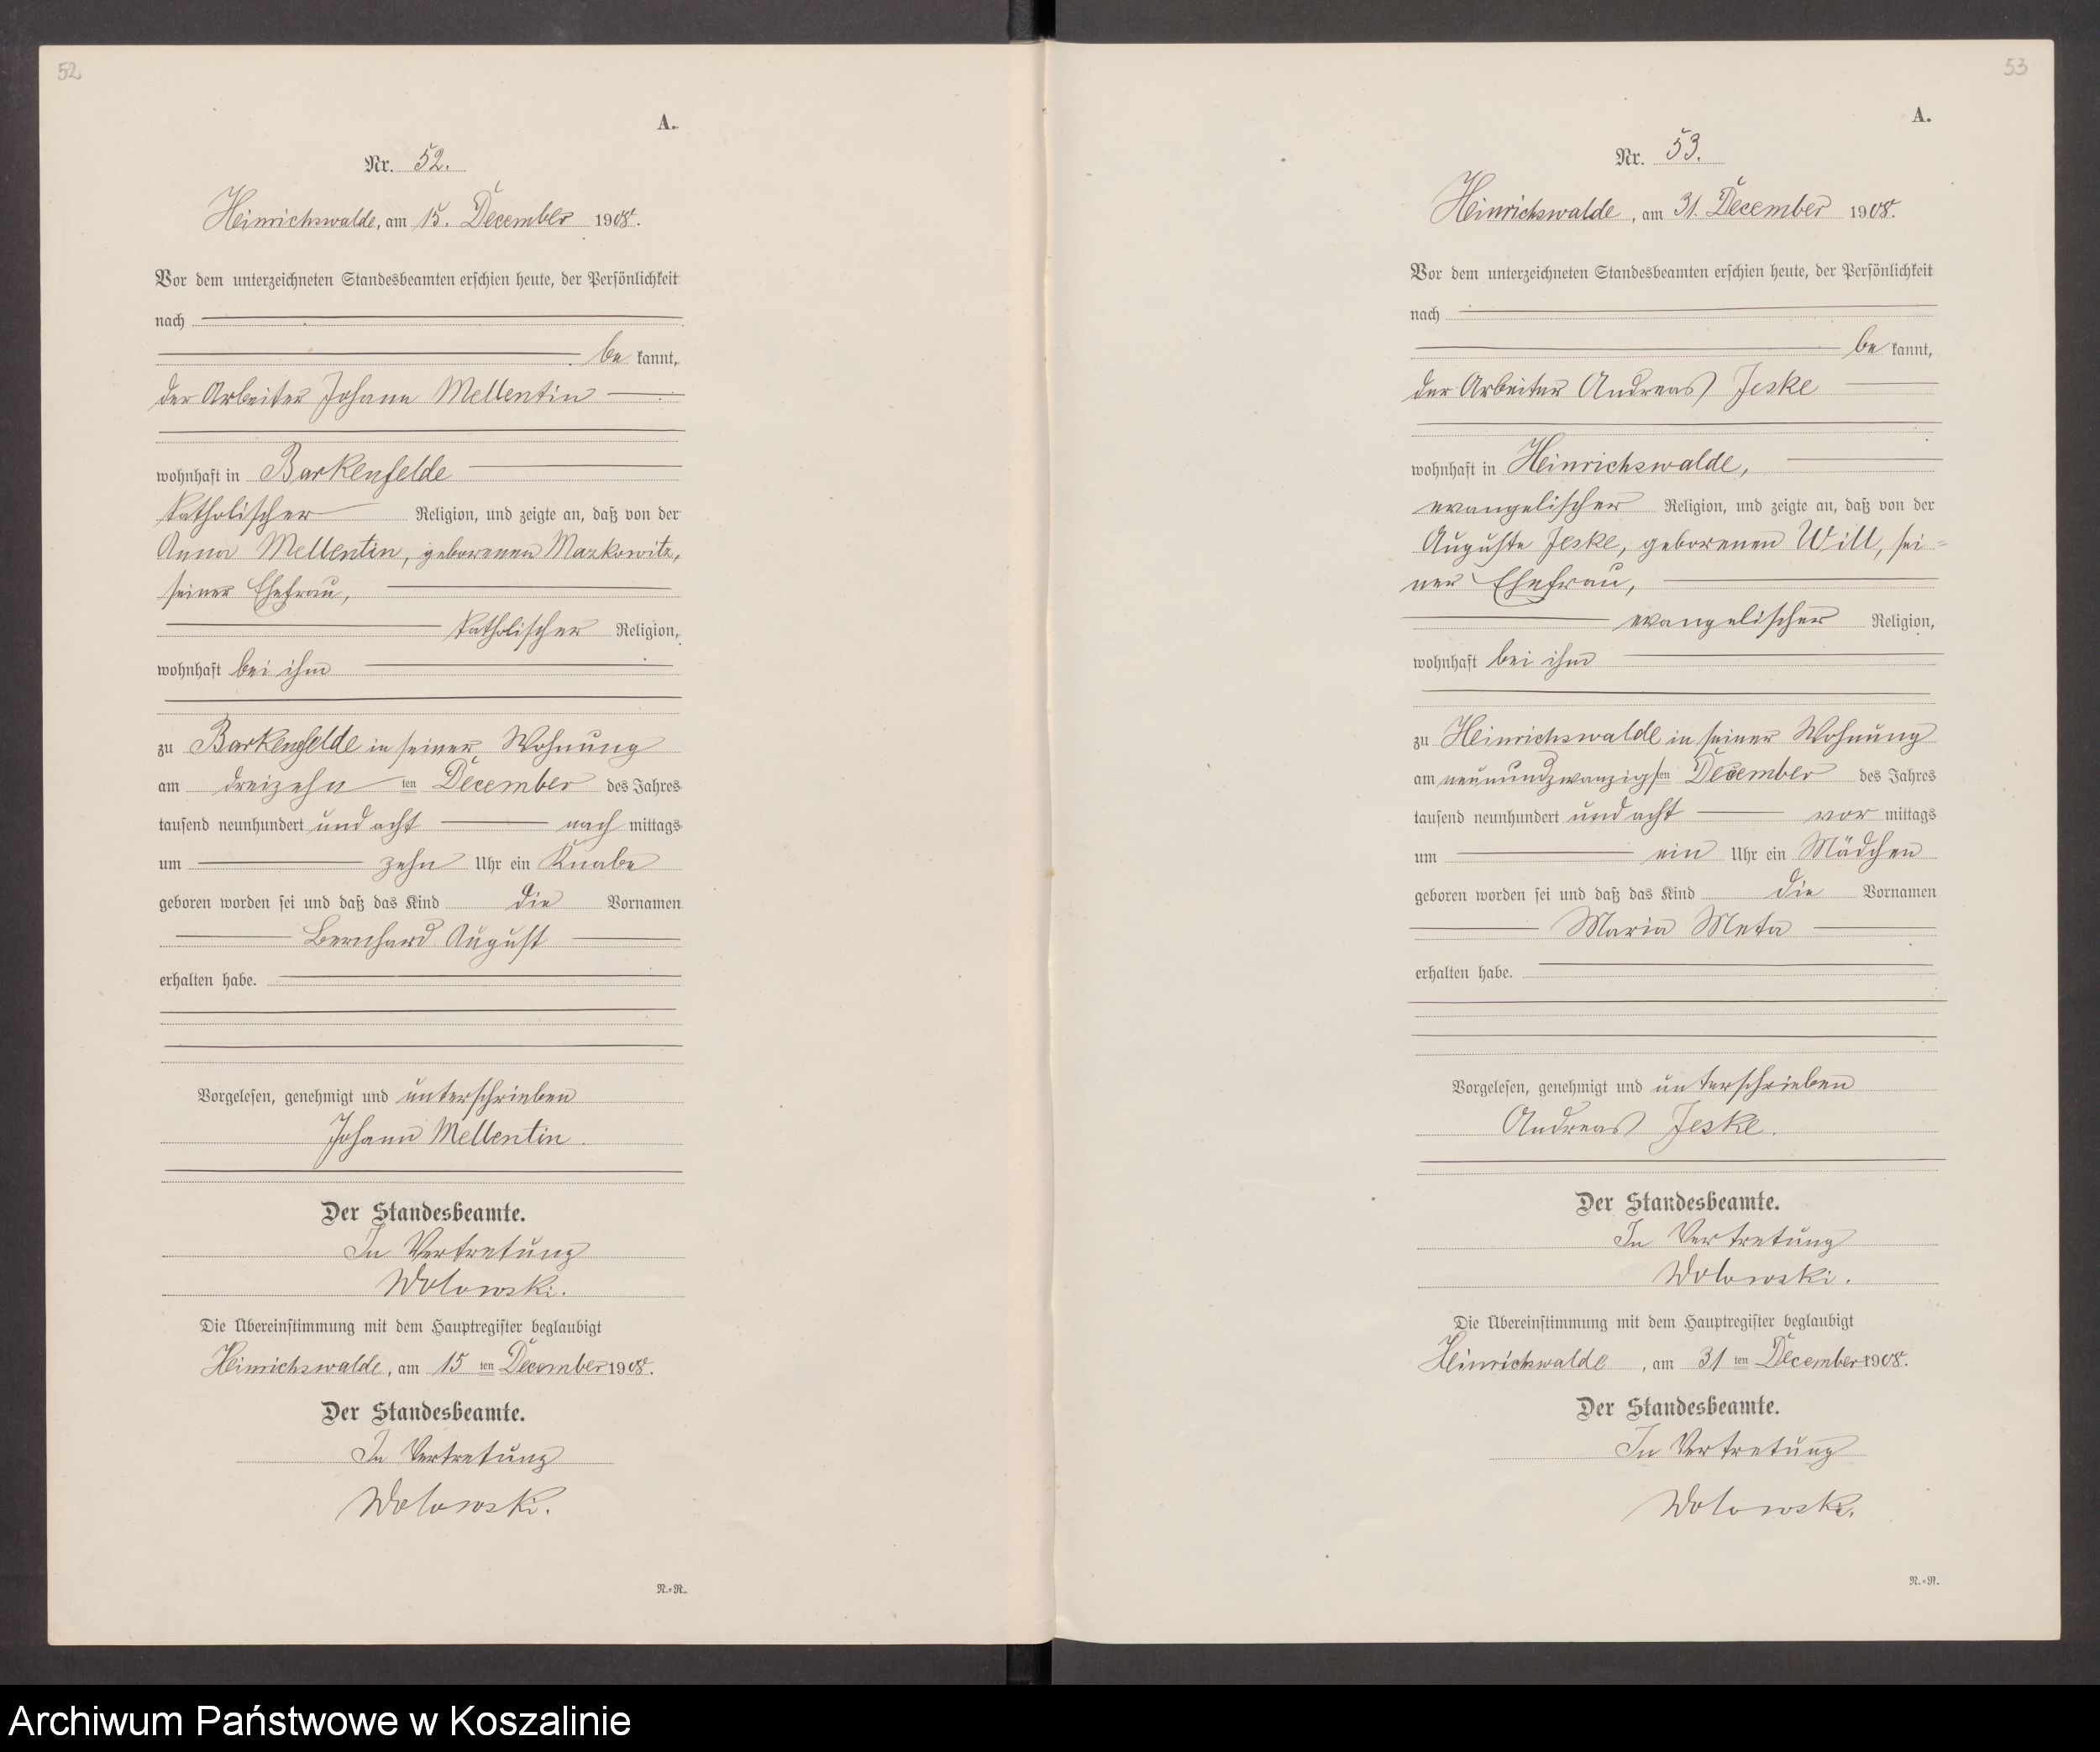 52
A.
Nr. 52.
Heinrichswalde, am 15. December 1908.
Vor dem unterzeichneten Standesbeamten erschien heute, der Persönlichkeit
nach
be kannt,
der Arbeiter Johann Mellentin
wohnhaft in Barkenfelde
katholischer Religion, und zeigte an, daß von der
Anna Mellentin, geborenen Mazkowitz,
seiner Ehefrau,
katholischer Religion,
wohnhaft bei ihm
zu Barkenfelde in seiner Wohnung
am dreizehn ten December des Jahres
tausend neunhundert und acht nach mittags
um zehn Uhr ein Knabe
geboren worden sei und daß das Kind die Vornamen
Bernhard August
erhalten habe.
Vorgelesen, genehmigt und unterschrieben
Johann Mellentin.
Der Standesbeamte.
In Vertretung
Wolowski.
Die Übereinstimmung mit dem Hauptregister beglaubigt
Heinrichswalde, am 15 ten December 1908.
Der Standesbeamte.
In Vertretung
Wolowski.
N.=R.
53
A.
Nr. 53.
Heinrichswalde, am 31. December 1908.
Vor dem unterzeichneten Standesbeamten erschien heute, der Persönlichkeit
nach
be kannt,
der Arbeiter Andreas Jeske
wohnhaft in Heinrichswalde,
evangelischer Religion, und zeigte an, daß von der
Auguste Jeske, geborenen Will, sei=
ner Ehefrau,
evangelischer Religion,
wohnhaft bei ihm
zu Heinrichswalde in seiner Wohnung
am neunundzwanzigsten December des Jahres
tausend neunhundert und acht vor mittags
um ein Uhr ein Mädchen
geboren worden sei und daß das Kind die Vornamen
Maria Meta
erhalten habe.
Vorgelesen, genehmigt und unterschrieben
Andreas Jeske.
Der Standesbeamte.
In Vertretung
Wolowski.
Die Übereinstimmung mit dem Hauptregister beglaubigt
Heinrichswalde, am 31 ten December 1908.
Der Standesbeamte.
In Vertretung
Wolowski.
N.=R.
Archiwum Państwowe w Koszalinie